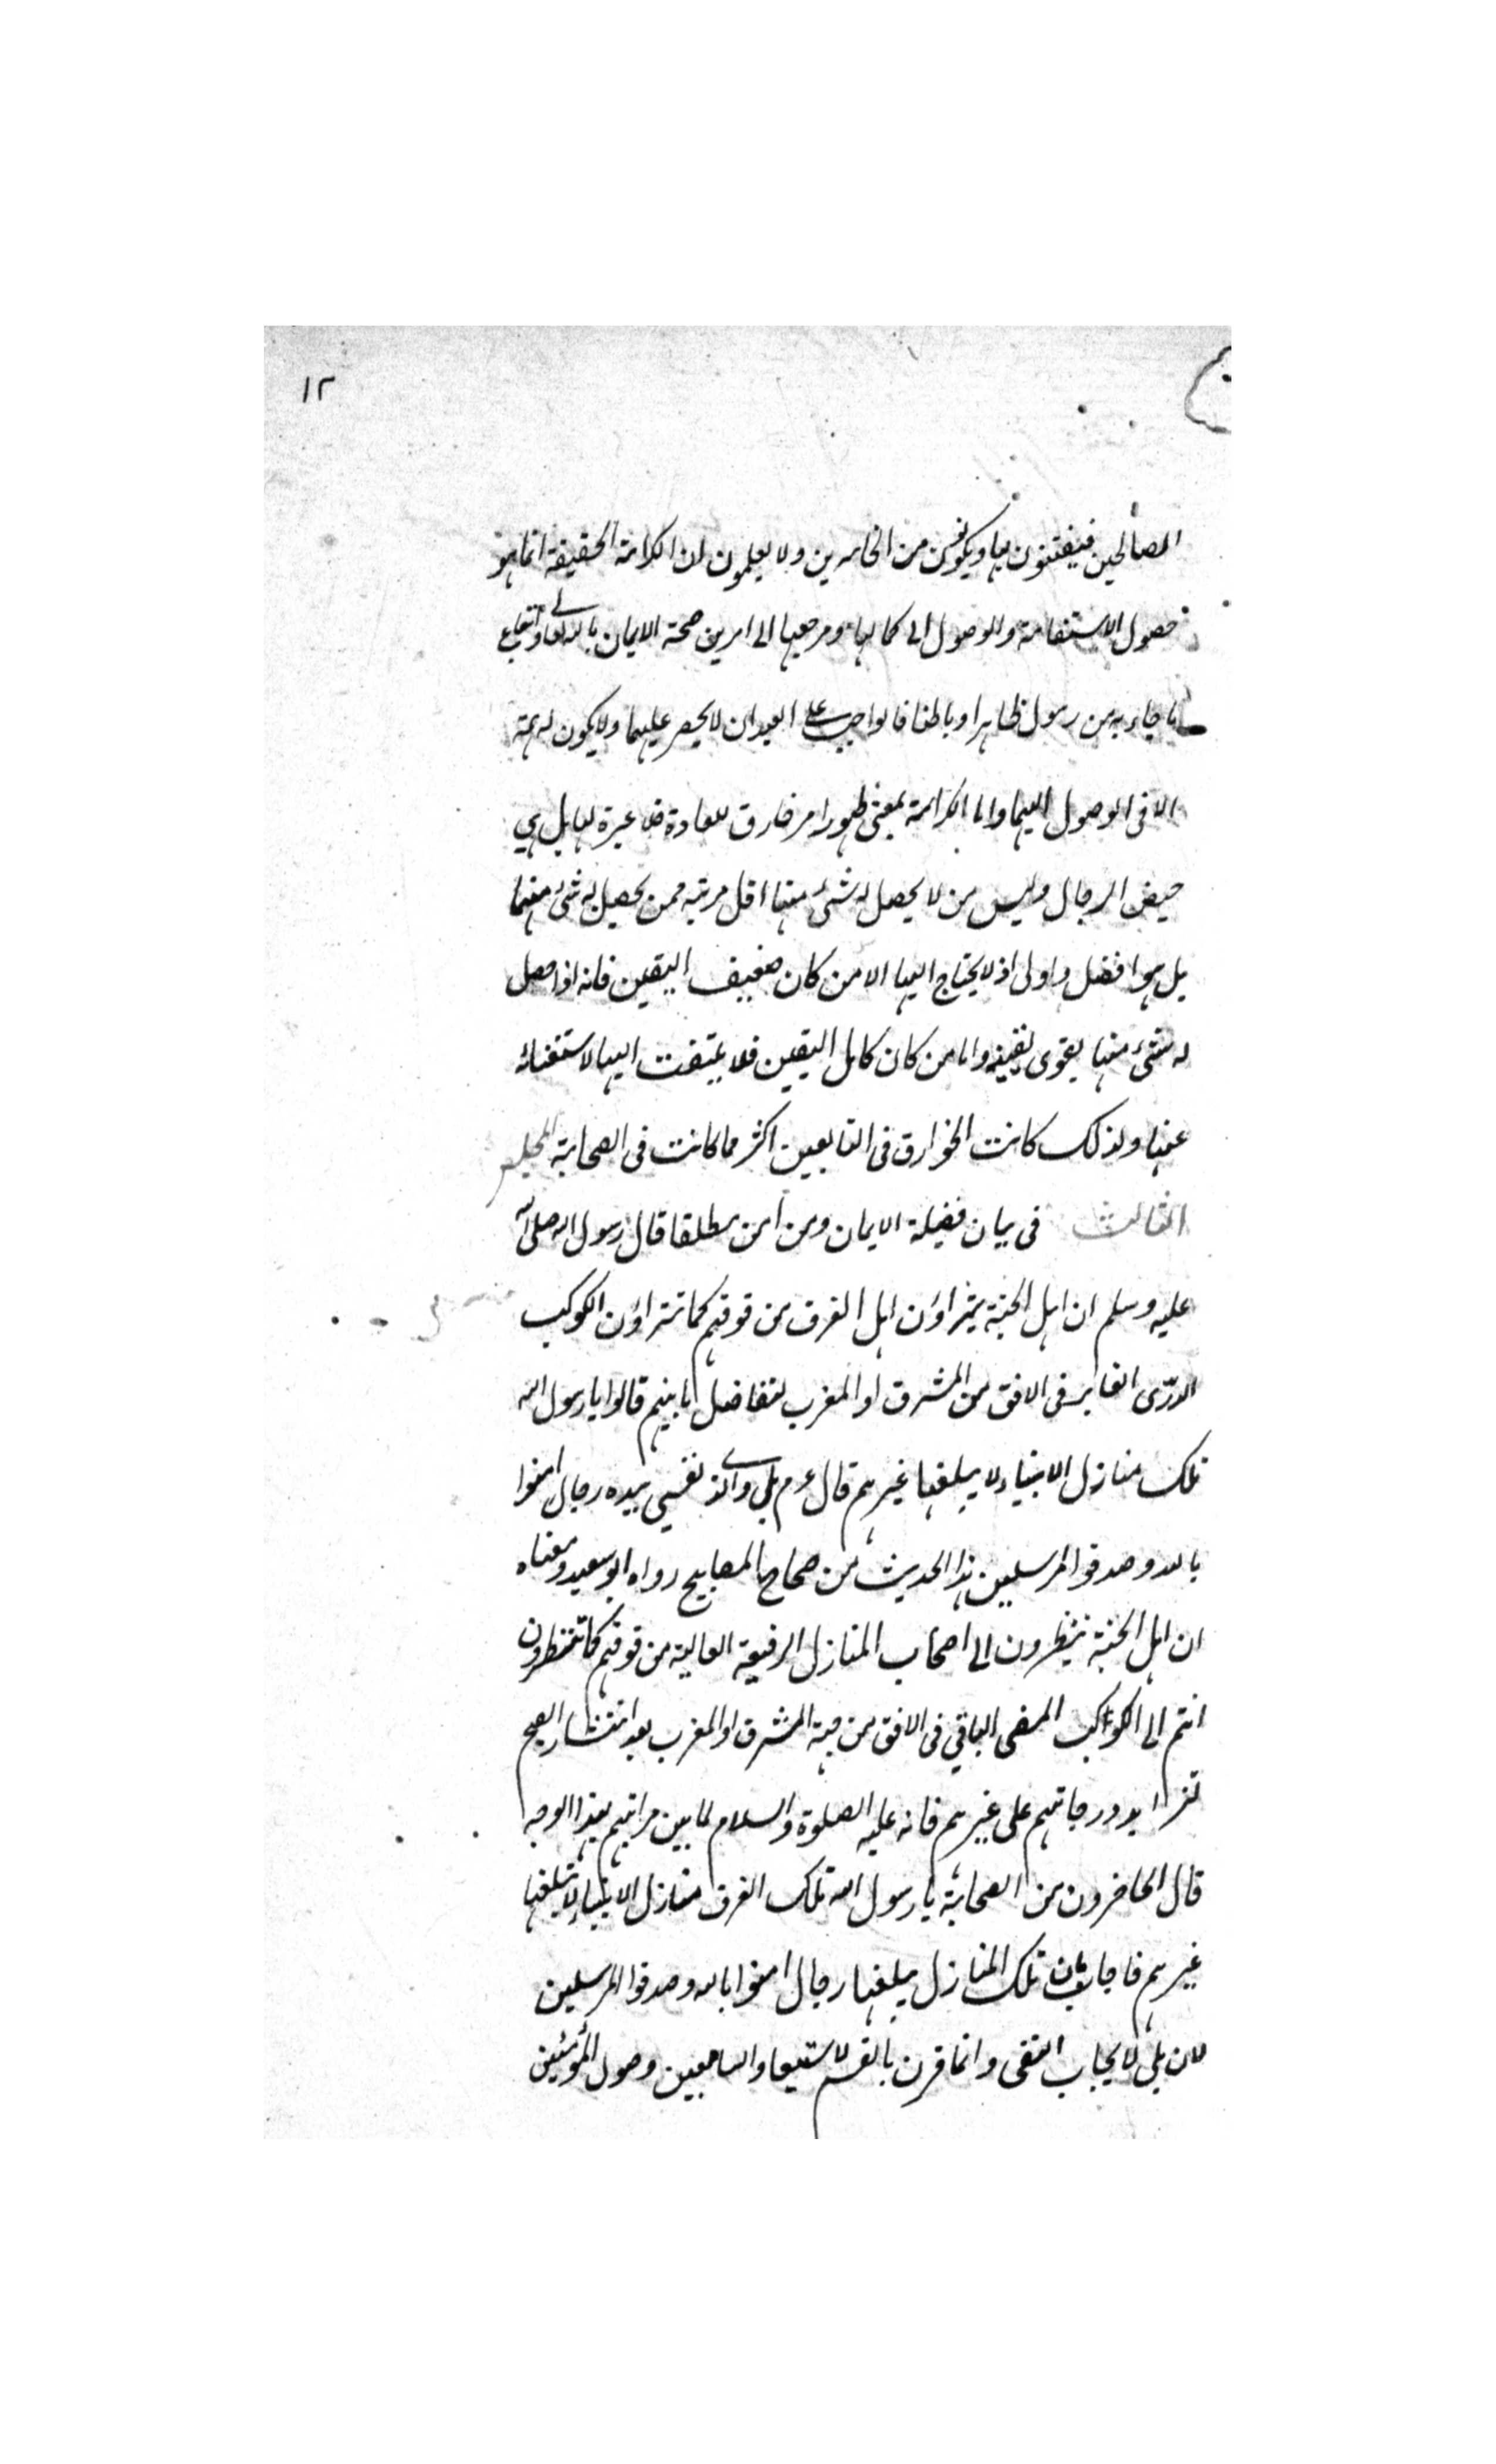 ١٢
الصالحين فيفتتنون بها ويكونون من الخاسرين ولا يعلمون ان الكرامة الحقيقة انما هو
حصول الاستقامة والوصول الى كمالها ومرجعها الى امرين صحة الايمان بالله تعالى واتباع
ما جاء به من رسول ظاهرا وباطنا فالواجب على العبد ان لا يحصر عليهما ولا يكون له همة
الا فى الوصول اليهما واما الكرامة بمعنى ظهور امر خارق للعادة فلا عبرة لها بل هي
حيض الرجال وليس من لا يحصل له شئ منها اقل مرتبه ممن يحصل له شئ منها
بل هو افضل واولى اذ لا يحتاج اليها الا من كان ضعيف اليقين فانه اذا حصل
له شئ منها يقوى يقينه واما من كان كامل اليقين فلا يلتفت اليها لاستغنائه
عنها ولذلك كانت الخوارق فى التابعين اكثر مما كانت فى الصحابة المجلس
الثالث فى بيان فضيلة الايمان ومن امن مطلقا قال رسول الله صلى الله
عليه وسلم ان اهل الجنة يتراؤن اهل الغرف من فوقهم كما تتراؤن الكوكب
الدرّى الغابر فى الافق من المشرق او المغرب لتفاضل ما بينهم قالوا يا رسول الله
تلك منازل الانبياء لا يبلغها غيرهم قال عم بلى والذى نفسي بيده رجال امنوا
بالله وصدقوا المرسلين هذا الحديث من صحاح المصابيح رواه ابو سعيد ومعناه
ان اهل الجنة ينظرون الى اصحاب المنازل الرفيعة العالية من فوقهم كما تنظرون
انتم الى الكواكب المضى الباقي فى الافق من جهة المشرق او المغرب بعد انتشار الصبح
لتزايد درجاتهم على غيرهم فانه عليه الصلوة والسلام لما بين مراتبهم بهذا الوجه
قال الحاضرون من الصحابة يا رسول الله تلك الغرف منازل الانبياء لا يبلغها
غيرهم فاجاب بان تلك المنازل يبلغها رجال امنوا بالله وصدقوا المرسلين
لان بلى لايجاب النفى وانما قرن بالقسم لاستبعاد السامعين وصول المؤمنين